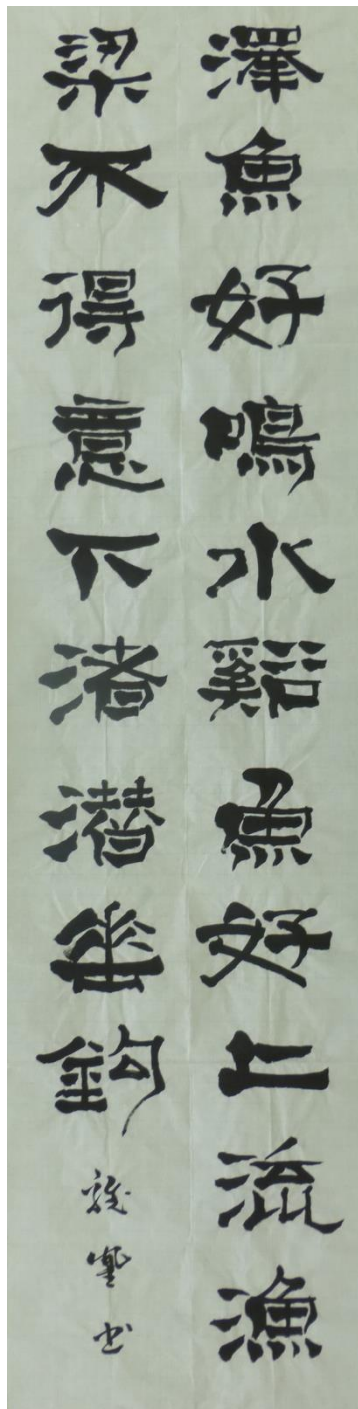 澤魚好鳴水谿魚好上流漁
梁不得意下渚潜垂鉤
書